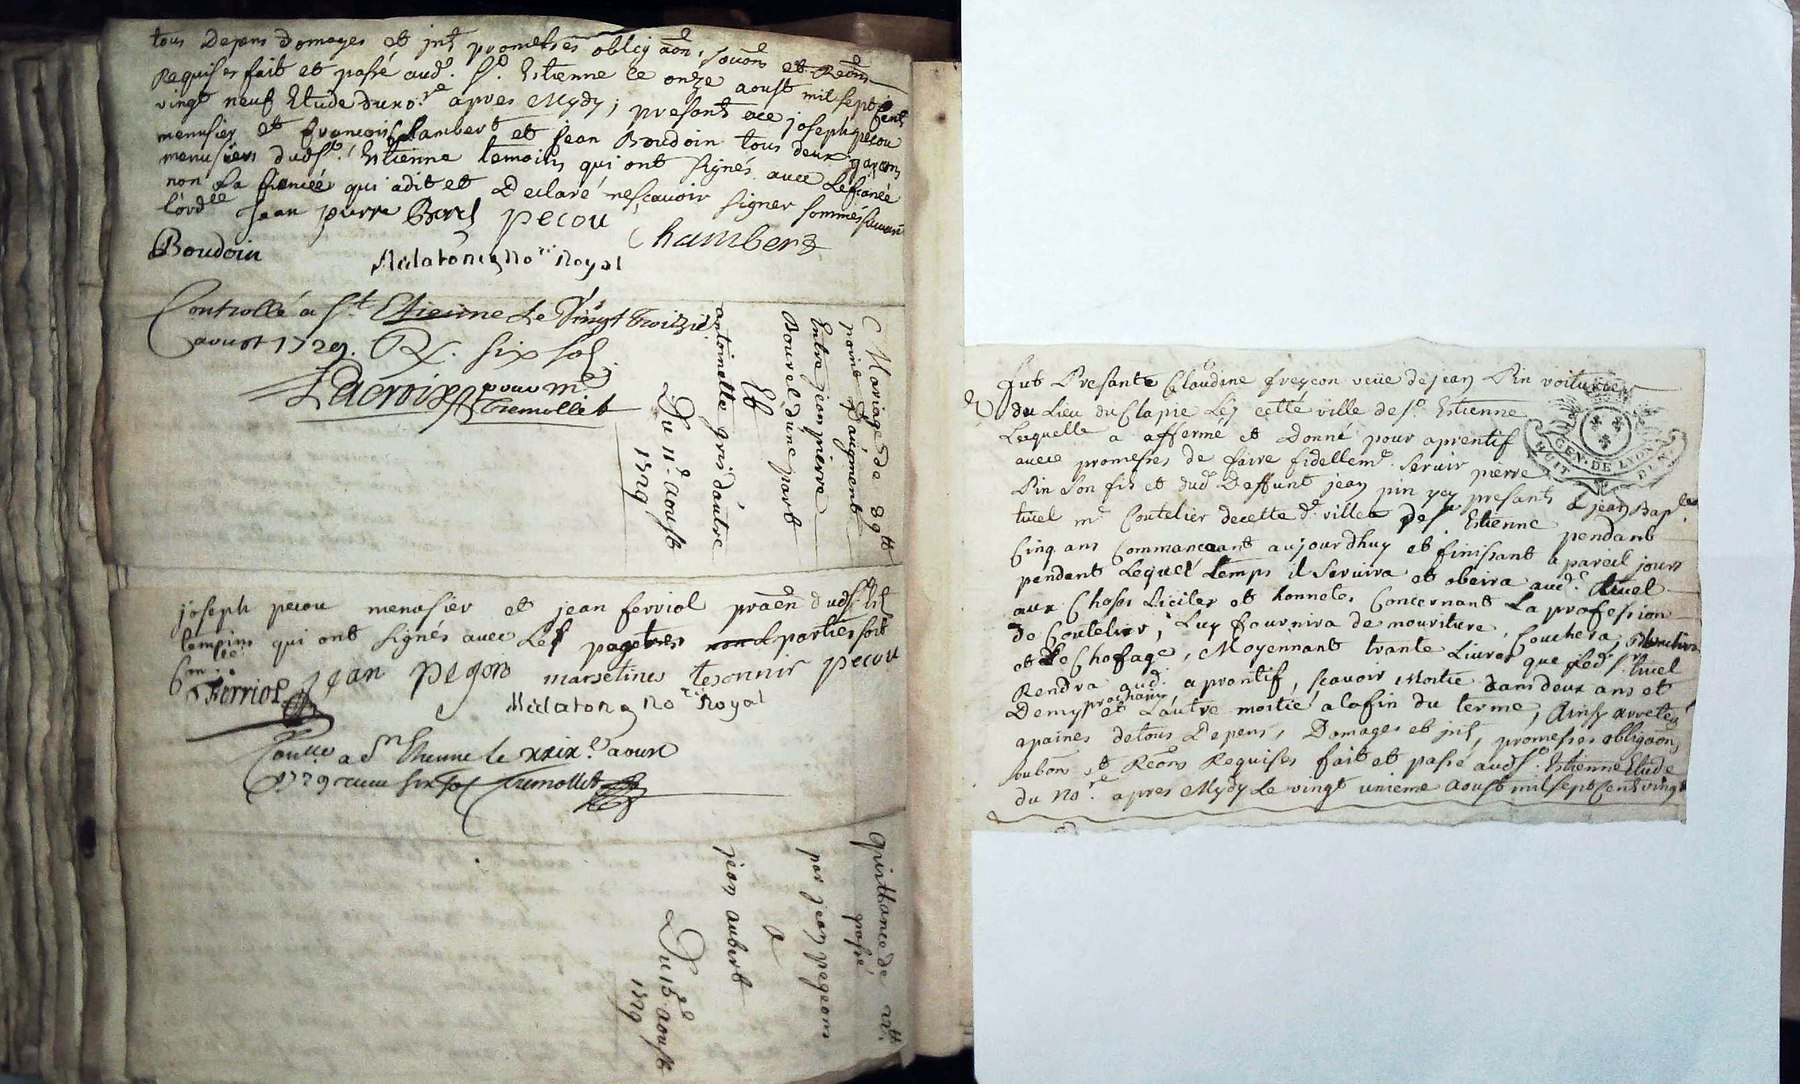 tous Depens Domages et jnt. promesses obligaõn, soumõn et Reõns
Requises fait et passé aud. St. Estienne le onze aoust mil sept cents
vingt neuf Etude du no.re apres Mydy, presants ace joseph pecou
menusier et francois Chambert et jean Boudoin tous deux garcons
menusiers dudSt. Estienne temoins qui ont signés avec Lefiancé
non La fiancée qui adit et Declaré nescavoir signer sommés suivant
lord.ce Jean pierre pecou
Chambert
Boudoin
No.re Royal
Controllé a St Etienne Le Vingt Troizie
aoust 1729. R. six sols
Lacroix pour mr
Tremollet
Mariage de 89tt
Entre jean pierre
Bourel dune part
Et
antoinette gris dautre
Du 11e aoust
1729
joseph pecou menusier et jean ferriol dudSt. Est.
temoins qui ont signés avec Les parties soit
Ferriol jean pegon marselines pecou
No.re Royal
a St Etienne le xxix.e aoust
1729 receu six sols Tremollet
Quittance de
passé
par jean pegeons
a
jean aubert
Du 15e aoust
1729
fut Presante Claudine freycon veüe de jean Pin voiturier
du Lieu du Clapie Lez cette ville de St. Estienne
Laquelle a affermé et donné pour aprentif
avec promesses de faire fidellemt. servir pierre
Pin son fils et dud. Deffunt jean pin yey presants a jean Bap.te
tivel me Coutelier decette d. ville de St Estienne pendant
Cinq ans Commancant aujourdhuy et finissant a pareil jours
pendant Lequel temps il servira et obeira aud. tivel
aux Choses Licites et honnetes Concernant La profession
de Coutelier; Luy fournira de nouriture, Couchera,
et Le Chofage, Moyennant trante Livres que led. Sr. tivel
Rendra aud. aprentif, scavoir moitie dans deux ans et
Demy prochains et Lautre moitié alafin du terme, Ainsy arretés
apaines detous Depens, Domages et jnt, promesses obligaõn,
soubõn et Reõns Requises fait et passé audSt. Estienne Etude
du No.re apres Mydy Le vingt unieme aoust mil sept Cent vingt
GEN. DE LYON
HUIT DEN.